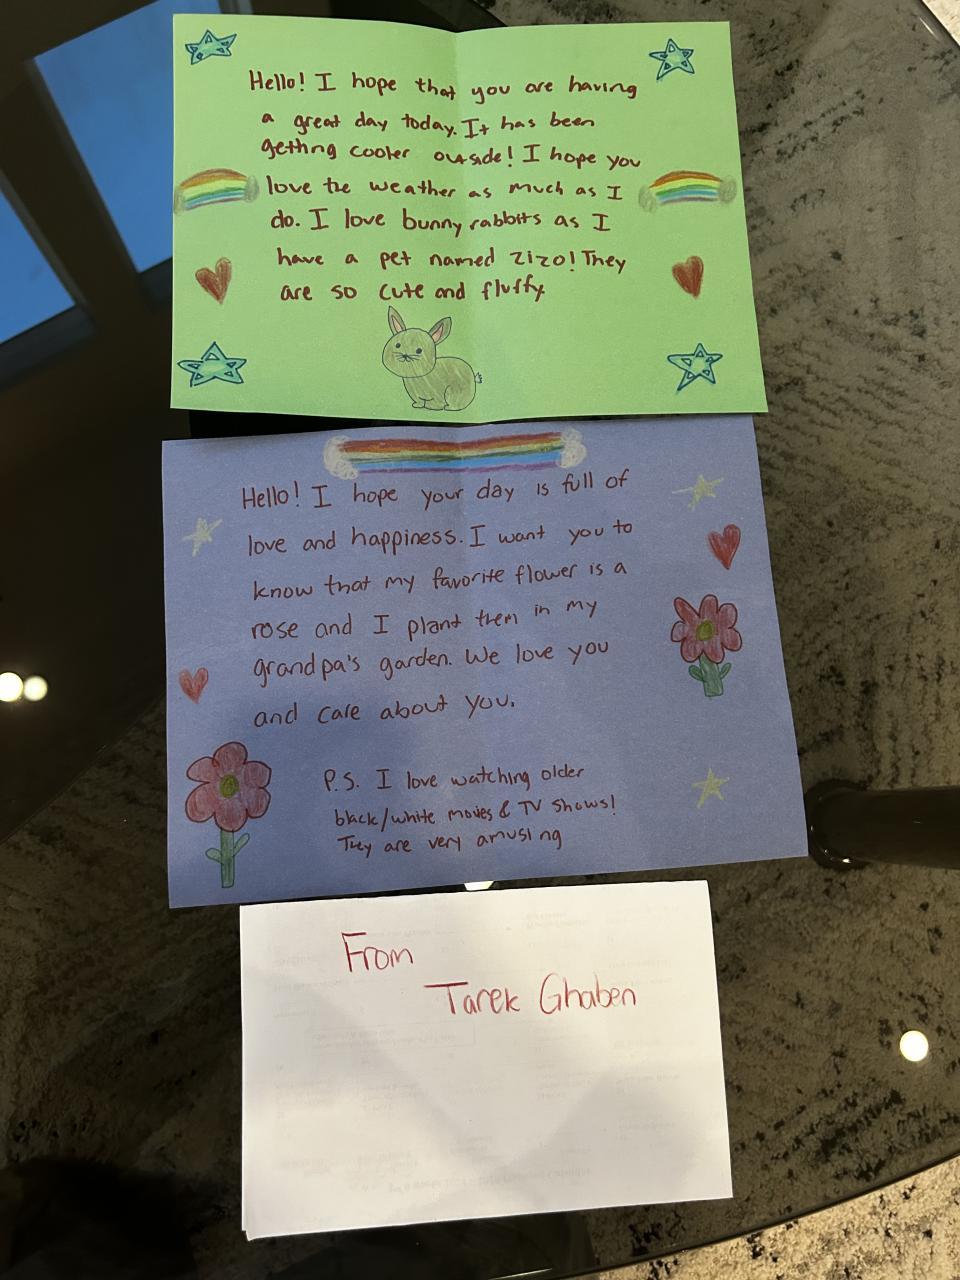 Hello! I hope that you are having
a great day today. It has been
getting cooler outside! I hope you
love the weather as much as I
do. I love bunny rabbits as I
have a pet named Zizo! They
are so cute and fluffy.
Hello! I hope your day is full of
love and happiness. I want you to
know that my favorite flower is a
rose and I plant them in my
grandpa's garden. We love you
and care about you.
P.S. I love watching older
black/white movies & TV shows!
They are very amusing
From
Tarek Ghaben